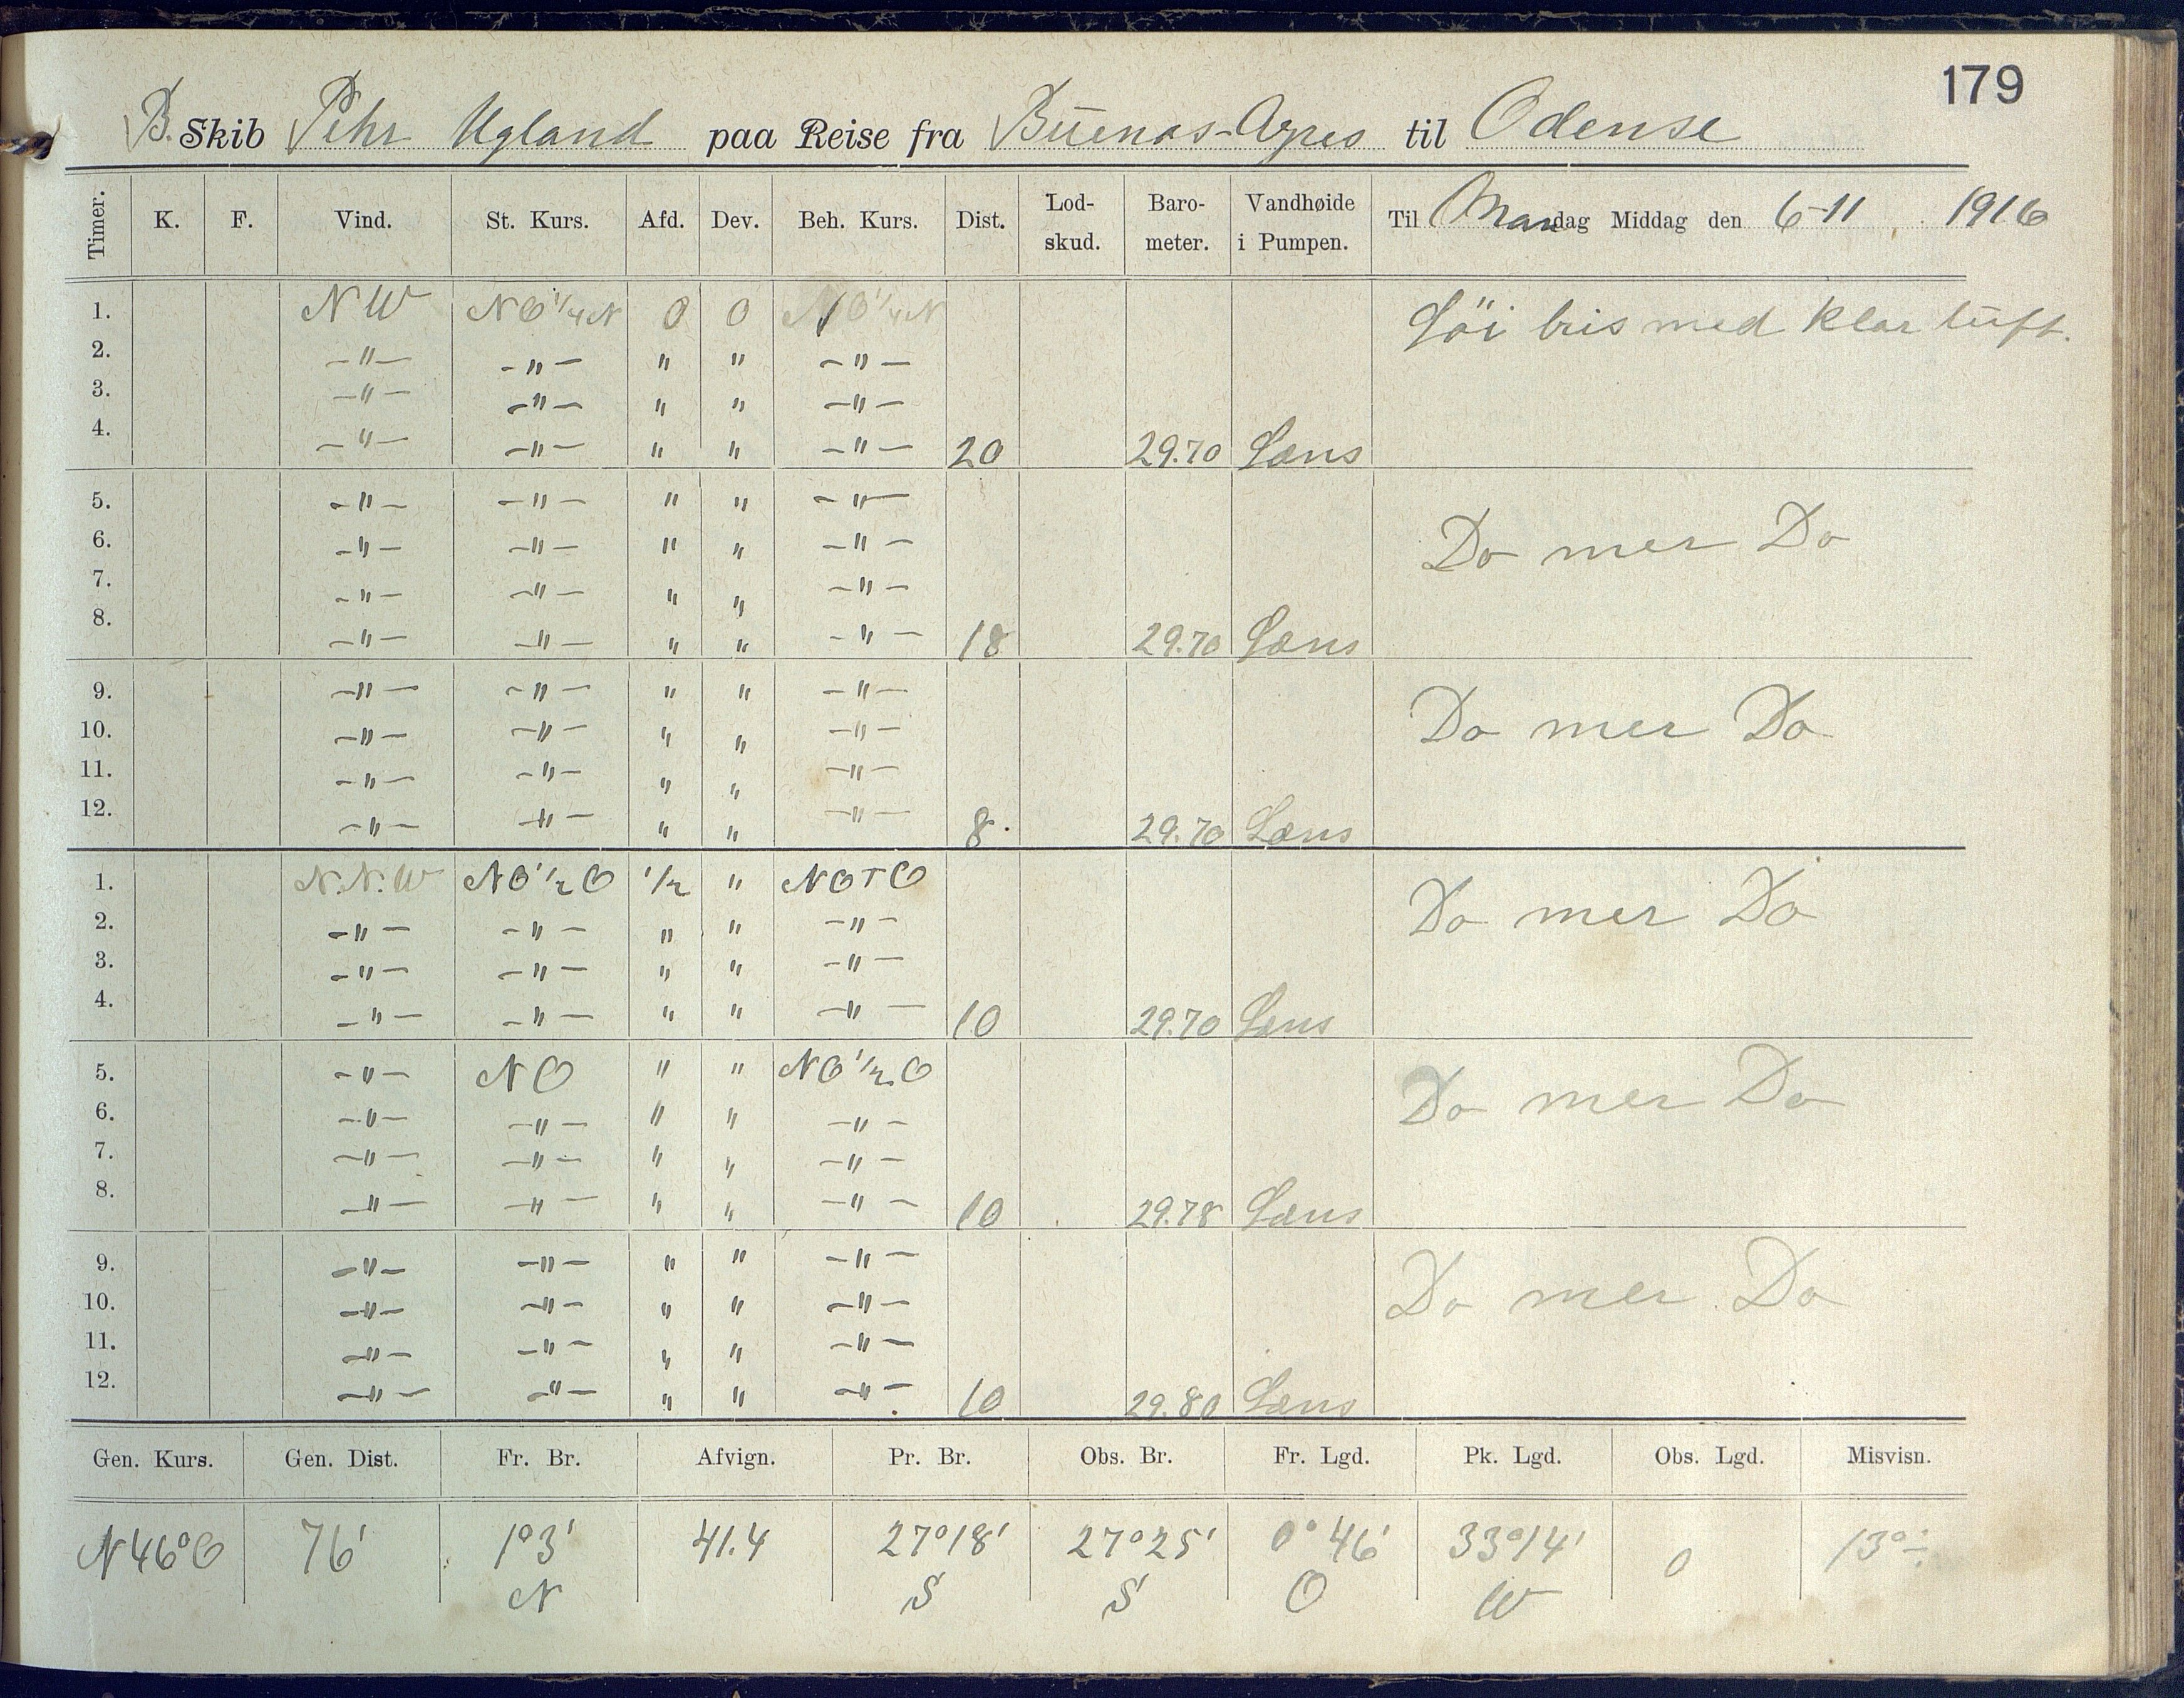 179
B. Skib Pehr Ugland paa Reise fra Buenos-Ayres til Odense
Timer. K. F. Vind. St. Kurs. Afd. Dev. Beh. Kurs. Dist. Lod-skud. Baro-meter. Vandhøide i Pumpen. Til Mandag Middag den 6-11 1916
1. NW NO 1/4 N 0 0 NO 1/4 N Löi bris med klar luft.
2. -"- -"- " " -"-
3. -"- -"- " " -"-
4. -"- -"- " " -"- 20 29.70 Læns
5. -"- -"- " " -"- Do mer Do
6. -"- -"- " " -"-
7. -"- -"- " " -"-
8. -"- -"- " " -"- 18 29.70 Læns
9. -"- -"- " " -"- Do mer Do
10. -"- -"- " " -"-
11. -"- -"- " " -"-
12. -"- -"- " " -"- 8. 29.70 Læns
1. N.N.W NO 1/2 O 1/2 " NOTO Do mer Do
2. -"- -"- " " -"-
3. -"- -"- " " -"-
4. -"- -"- " " -"- 10 29.70 Læns
5. -"- NO " " NO 1/2 O Do mer Do
6. -"- -"- " " -"-
7. -"- -"- " " -"-
8. -"- -"- " " -"- 10 29.78 Læns
9. -"- -"- " " -"- Do mer Do
10. -"- -"- " " -"-
11. -"- -"- " " -"-
12. -"- -"- " " -"- 10 29.80 Læns
Gen. Kurs. Gen. Dist. Fr. Br. Afvign. Pr. Br. Obs. Br. Fr. Lgd. Pk. Lgd. Obs. Lgd. Misvisn.
N46°O 76' 1°3' 41.4 27°18' 27°25' 0°46' 33°14' 0 13°÷
N S S O W